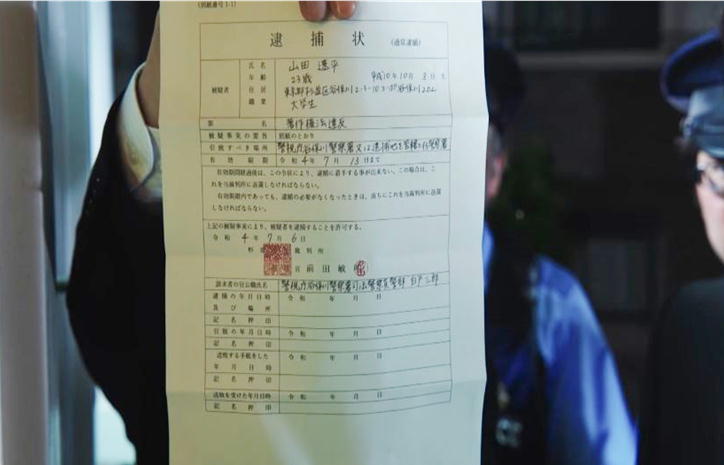 (別紙番号1-1)
逮捕状 (通常逮捕)
被疑者
氏名 山田 遼平
年齢 23歳 平成10年10月8日生
住居
職業 大学生
罪名 著作権法違反
被疑事実の要旨 別紙のとおり
引致すべき場所 警視庁谷保川警察署又は逮捕地を管轄する警察署
有効期限 令和4年7月13日まで
有効期間経過後は、この令状により、逮捕に着手する事が出来ない。この場合は、こ
れを当裁判所に返還しなければならない。
有効期限内であっても、逮捕の必要がなくなったときは、直ちにこれを当裁判所に返還
しなければならない。
上記の被疑事実により、被疑者を逮捕することを許可する。
令和4年7月6日
裁判所
官 前田 敏
請求者の官公職氏名 警視庁谷保川警察署司法警察員警部
逮捕の年月日時 令和 年 月 日
及び場所
記名押印
引致の年月日時 令和 年 月 日
記名押印
送致する手続をした 令和 年 月 日
年月日時
記名押印
送致を受けた年月日時 令和 年 月 日
記名押印